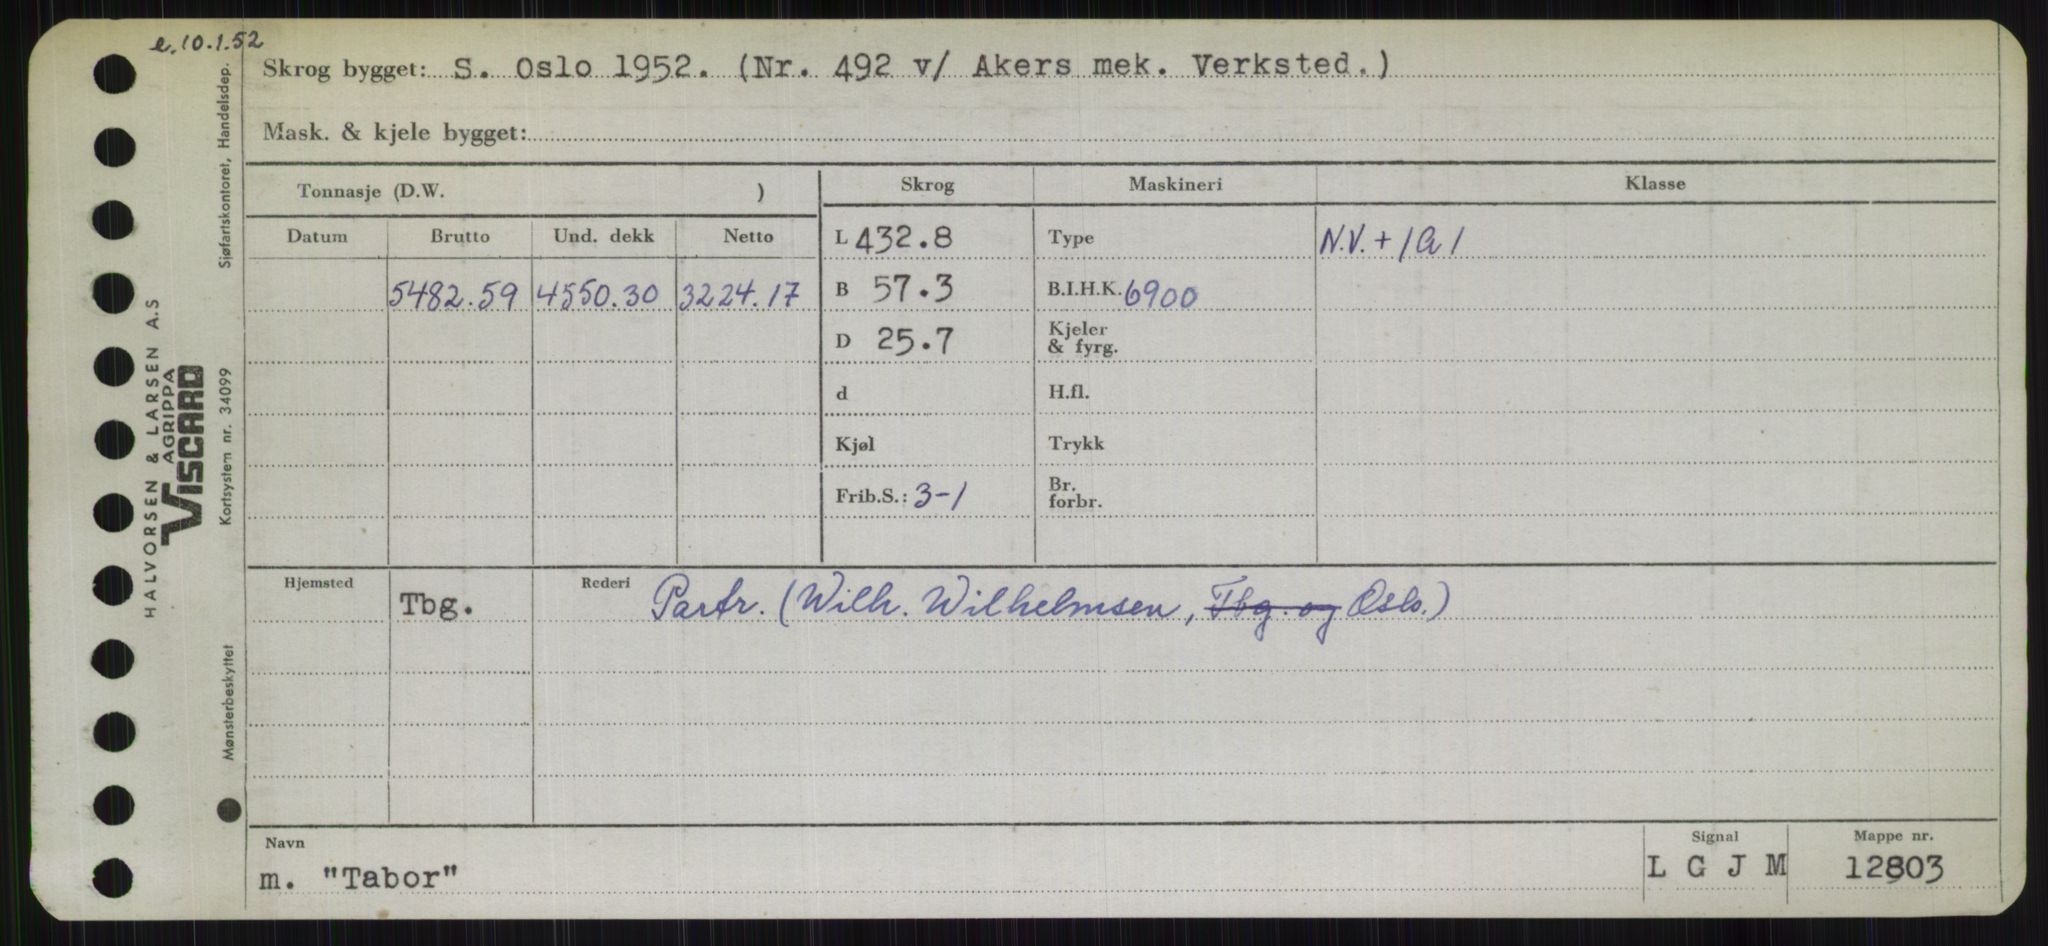 e. 10.1.52
Skrog bygget: S. Oslo 1952. (Nr. 492 v/ Akers mek. Verksted.)
Mask. & kjele bygget:
Tonnasje (D.W. )
Skrog Maskineri Klasse
Datum Brutto Und. dekk Netto
L 432.8 Type N.V. + 1A1
5482.59 4550.30 3224.17
B 57.3 B.I.H.K. 6900
D 25.7 Kjeler & fyrg.
d H.fl.
Kjøl Trykk
Frib.S.: 3-1 Br. forbr.
Hjemsted Tbg. Rederi Partr. (Wilh. Wilhelmsen, Tbg. og Oslo.)
Navn Signal Mappe nr.
m. "Tabor" L G J M 12803
HALVORSEN & LARSEN A.S
AGRIPPA
VISCARD
Sjøfartskontoret, Handelsdep.
Kortsystem nr. 34099
Mønsterbeskyttet